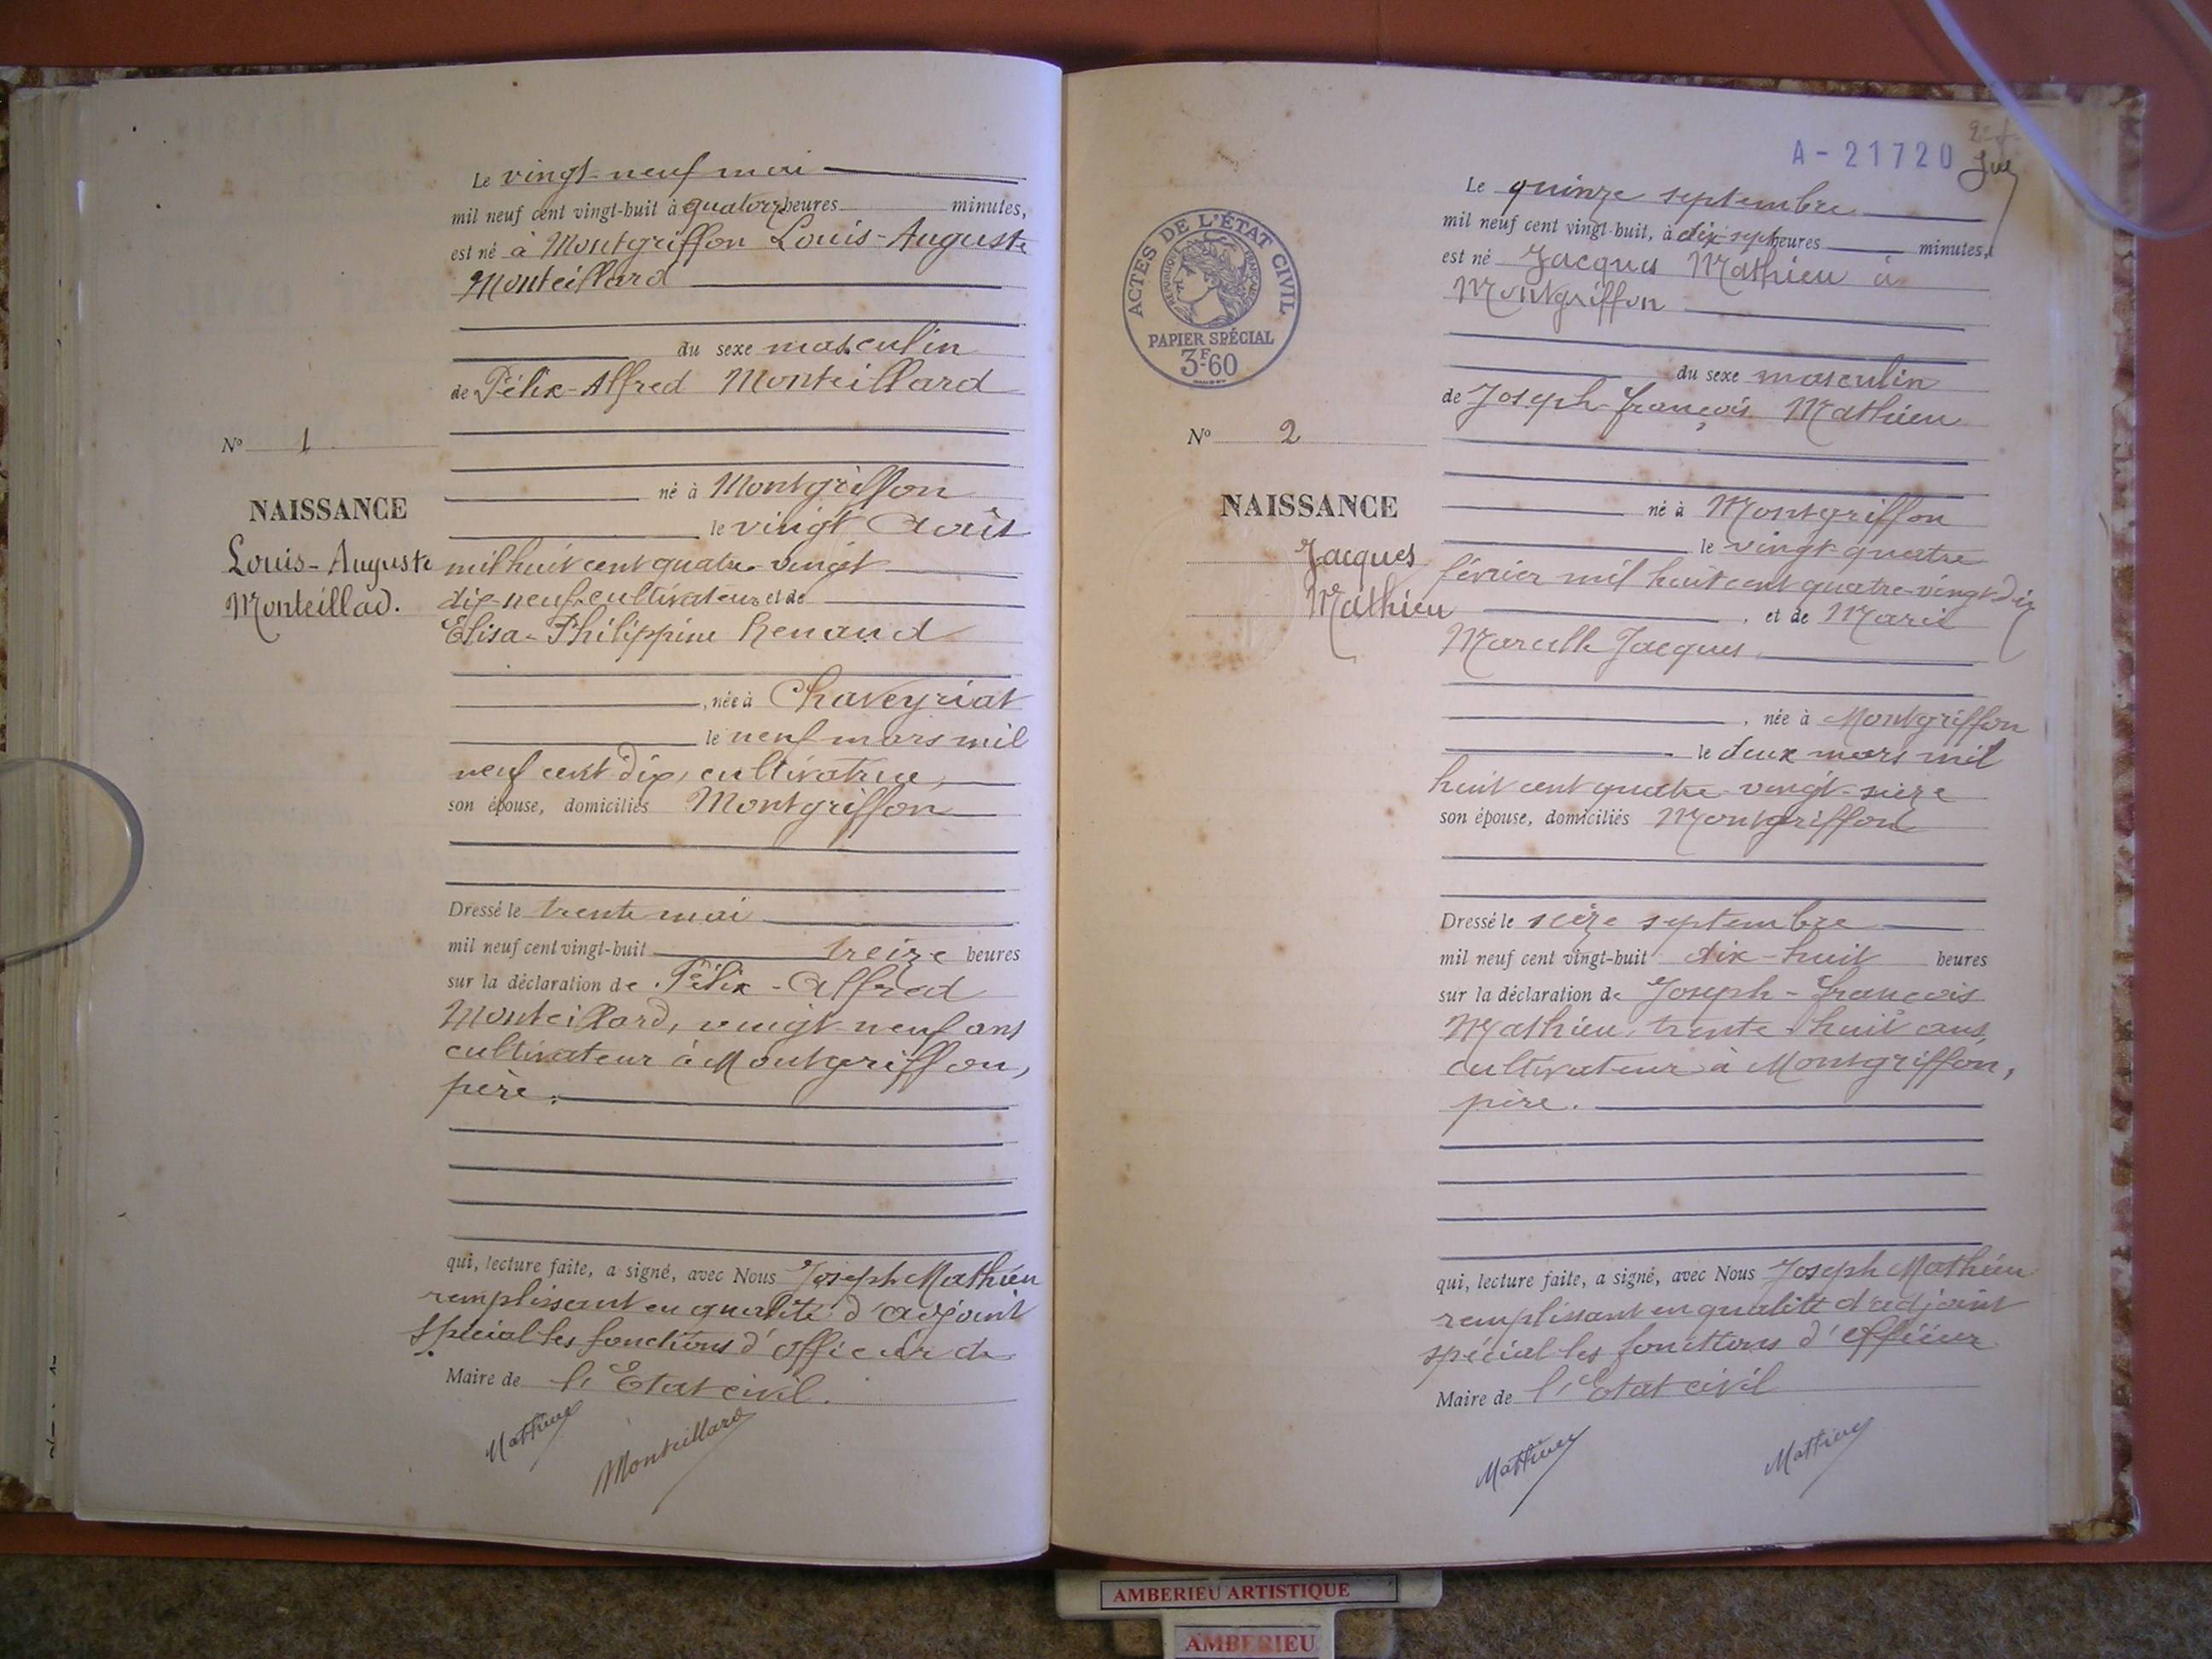 Le vingt-neuf mai
mil neuf cent vingt-huit à quatorze heures minutes,
est né à Montgriffon Louis-Auguste
Monteillard
du sexe masculin
de Félix-Alfred Monteillard
né à Montgriffon
le vingt Août
mil huit cent quatre-vingt
dix-neuf cultivateur et de
Elisa-Philippine Renaud
, née à Chaveyriat
le neuf mars mil
neuf cent dix, cultivatrice,
son épouse, domiciliés Montgriffon
Dressé le trente mai
mil neuf cent vingt-huit treize heures
sur la déclaration de Félix-Alfred
Monteillard, vingt-neuf ans
cultivateur à Montgriffon,
père.
qui, lecture faite, a signé, avec Nous Joseph Mathieu
remplissant en qualité d'adjoint
spécial les fonctions d'officier de
Maire de l'Etat civil.
Mathieu
Monteillard
N° 1
NAISSANCE
Louis-Auguste
Monteillad.
A-21720
ACTES DE L'ÉTAT CIVIL
RÉPUBLIQUE FRANÇAISE
PAPIER SPÉCIAL
3F60
N° 2
NAISSANCE
Jacques
Mathieu
Le quinze septembre
mil neuf cent vingt-huit, à dix-sept heures minutes,
est né Jacques Mathieu à
Montgriffon
du sexe masculin
de Joseph-françois Mathieu
né à Montgriffon
le vingt-quatre
février mil huit cent quatre-vingt dix
, et de Marie
Marcelle Jacques
, née à Montgriffon
le deux mars mil
huit cent quatre-vingt-seize
son épouse, domiciliés Montgriffon
Dressé le seize septembre
mil neuf cent vingt-huit dix-huit heures
sur la déclaration de Joseph-françois
Mathieu, trente-huit ans,
cultivateur à Montgriffon,
père.
qui, lecture faite, a signé, avec Nous Joseph Mathieu
remplissant en qualité d'adjoint
spécial les fonctions d'officier
Maire de l'Etat civil
Mathieu
Mathieu
AMBERIEU ARTISTIQUE
AMBERIEU